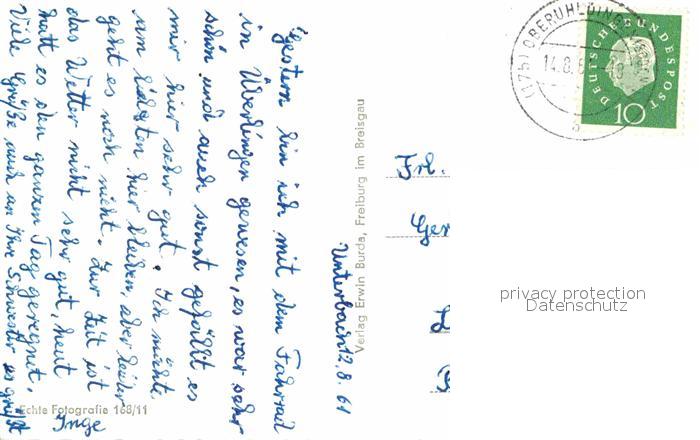 Unterbach 12.8.61
Gestern bin ich mit dem Fahrrad
in Überlingen gewesen, es war sehr
schön und auch sonst gefällt es
mir hier sehr gut. Ich möchte
am liebsten hier bleiben, aber leider
geht es noch nicht. Zur Zeit ist
das Wetter nicht sehr gut, heut
hatt es den ganzen Tag geregnet.
Viele Grüße auch an Ihre Schwester es grüßt
Inge
Echte Fotografie 168/11
Verlag Erwin Burda, Freiburg im Breisgau
(17b) OBERUHLDINGEN
14.8.6
a
DEUTSCHE BUNDESPOST
10
Frl.
Ger
privacy protection
Datenschutz